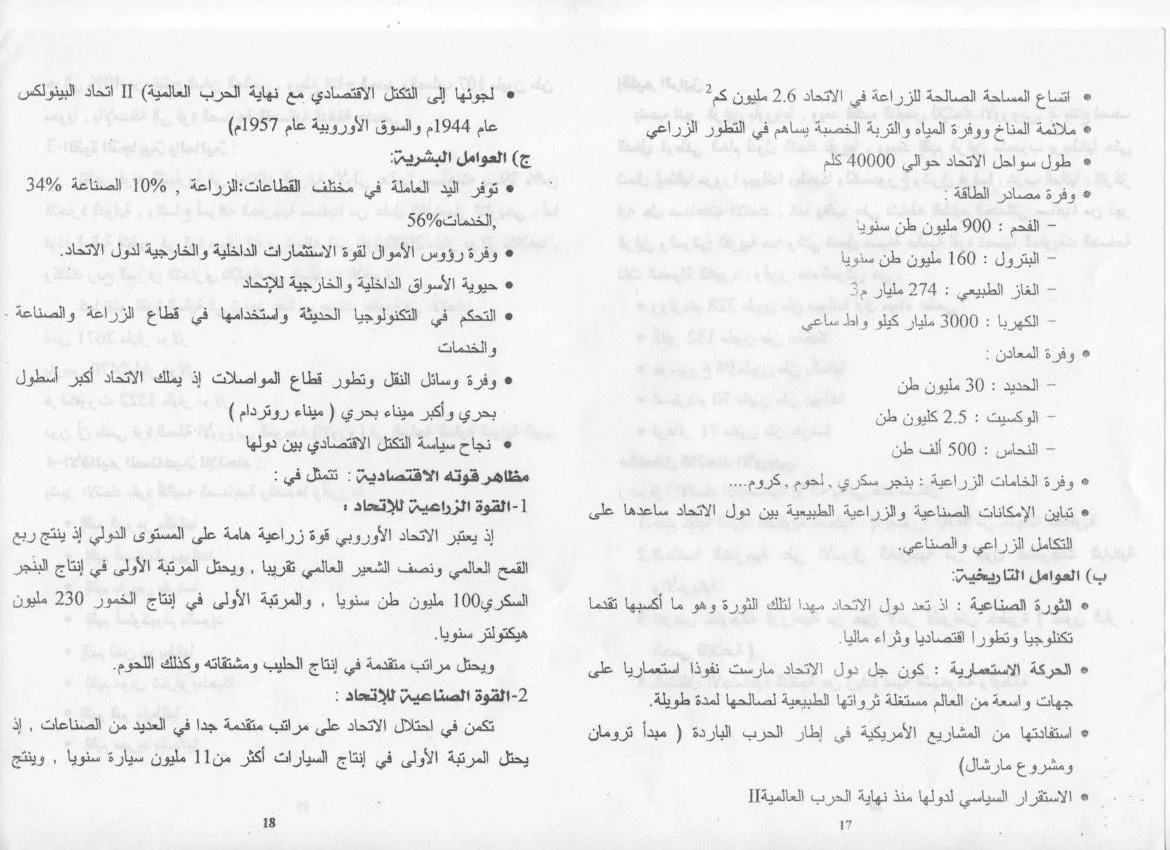 • اتساع المساحة الصالحة للزراعة في الاتحاد 2.6 مليون كم2
• ملائمة المناخ ووفرة المياه والتربة الخصبة يساهم في التطور الزراعي
• طول سواحل الاتحاد حوالي 40000 كلم
• وفرة مصادر الطاقة :
– الفحم : 900 مليون طن سنويا
– البترول : 160 مليون طن سنويا
– الغاز الطبيعي : 274 مليار م3
– الكهرباء : 3000 مليار كيلو واط ساعي
• وفرة المعادن :
– الحديد : 30 مليون طن
– الوكسيت : 2.5 كليون طن
– النحاس : 500 ألف طن
• وفرة الخامات الزراعية : بنجر سكري , لحوم , كروم....
• تباين الإمكانات الصناعية والزراعية الطبيعية بين دول الاتحاد ساعدها على
التكامل الزراعي والصناعي.
ب) العوامل التاريخية:
• الثورة الصناعية : اذ تعد دول الاتحاد مهدا لتلك الثورة وهو ما أكسبها تقدما
تكنلوجيا وتطورا اقتصاديا وثراء ماليا.
• الحركة الاستعمارية : كون جل دول الاتحاد مارست نفوذا استعماريا على
جهات واسعة من العالم مستغلة ثرواتها الطبيعية لصالحها لمدة طويلة.
• استفادتها من المشاريع الأمريكية في إطار الحرب الباردة ( مبدأ ترومان
ومشروع مارشال)
• الاستقرار السياسي لدولها منذ نهاية الحرب العالميةII
17
• لجوئها إلى التكتل الاقتصادي مع نهاية الحرب العالمية) II اتحاد البينولكس
عام 1944م والسوق الأوروبية عام 1957م)
ج) العوامل البشرية:
• توفر اليد العاملة في مختلف القطاعات:الزراعة , 10% الصناعة 34%
,الخدمات56%
• وفرة رؤوس الأموال لقوة الاستثمارات الداخلية والخارجية لدول الاتحاد.
• حيوية الأسواق الداخلية والخارجية للإتحاد
• التحكم في التكنولوجيا الحديثة واستخدامها في قطاع الزراعة والصناعة
والخدمات
• وفرة وسائل النقل وتطور قطاع المواصلات إذ يملك الاتحاد أكبر اسطول
بحري وأكبر ميناء بحري ( ميناء روتردام )
• نجاح سياسة التكتل الاقتصادي بين دولها
مظاهر قوته الاقتصادية : تتمثل في :
1-القوة الزراعية للإتحاد :
إذ يعتبر الاتحاد الأوروبي قوة زراعية هامة على المستوى الدولي إذ ينتج ربع
القمح العالمي ونصف الشعير العالمي تقريبا , ويحتل المرتبة الأولى في إنتاج البنجر
السكري100 مليون طن سنويا , والمرتبة الأولى في إنتاج الخمور 230 مليون
هيكتولتر سنويا.
ويحتل مراتب متقدمة في إنتاج الحليب ومشتقاته وكذلك اللحوم.
2-القوة الصناعية للإتحاد :
تكمن في احتلال الاتحاد على مراتب متقدمة جدا في العديد من الصناعات , إذ
يحتل المرتبة الأولى في إنتاج السيارات أكثر من11 مليون سيارة سنويا , وينتج
18